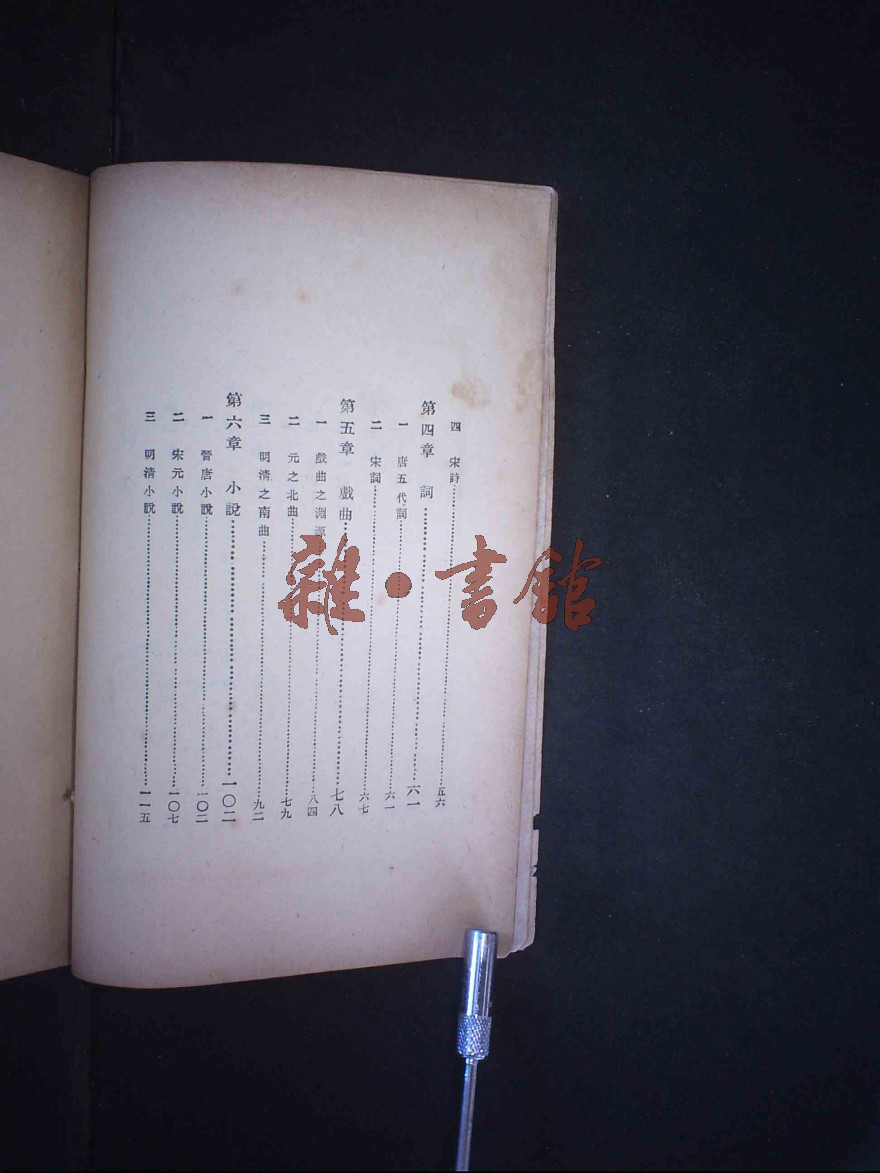 四　宋詩……五六
第四章　詞……六一
一　唐五代詞……六一
二　宋詞……六七
第五章　戲曲……七八
一　戲曲之淵源……八四
二　元之北曲……七九
三　明清之南曲……九二
第六章　小說……一〇二
一　晉唐小說……一〇二
二　宋元小說……一〇七
三　明清小說……一一五
雜·書館